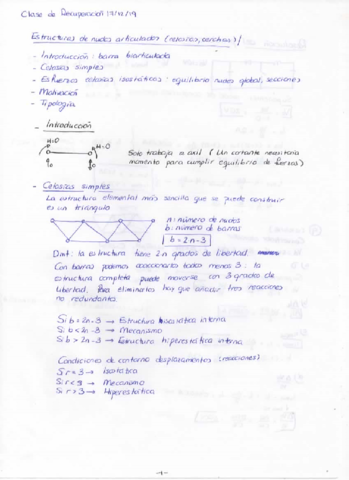 Clase de Recuperación 17/12/19
Estructuras de nudos articulados (celosías, cerchas)
- Introducción: barra biarticulada
- Celosías simples
- Esfuerzos celosías isostáticas: equilibrio nudos global, secciones
- Motivación
- Tipología
- Introducción
M=0
M=0
Solo trabaja a axil (Un cortante necesitaría
momento para cumplir equilibrio de fuerzas)
- Celosías simples
La estructura elemental más sencilla que se puede construir
es un triángulo
n: número de nudos
b: número de barras
b = 2n-3
Dmt: la estructura tiene 2n grados de libertad.
Con barras podemos coaccionarlos todos menos 3: la
estructura completa puede moverse con 3 grados de
libertad. Para eliminarlos hay que añadir tres reacciones
no redundantes
Si b = 2n-3 → Estructura isostática interna
Si b < 2n-3 → Mecanismo
Si b > 2n-3 → Estructura hiperestática interna
Condiciones de contorno desplazamientos (reacciones)
Si r = 3 → Isostática
Si r < 3 → Mecanismo
Si r > 3 → Hiperestática
-1-